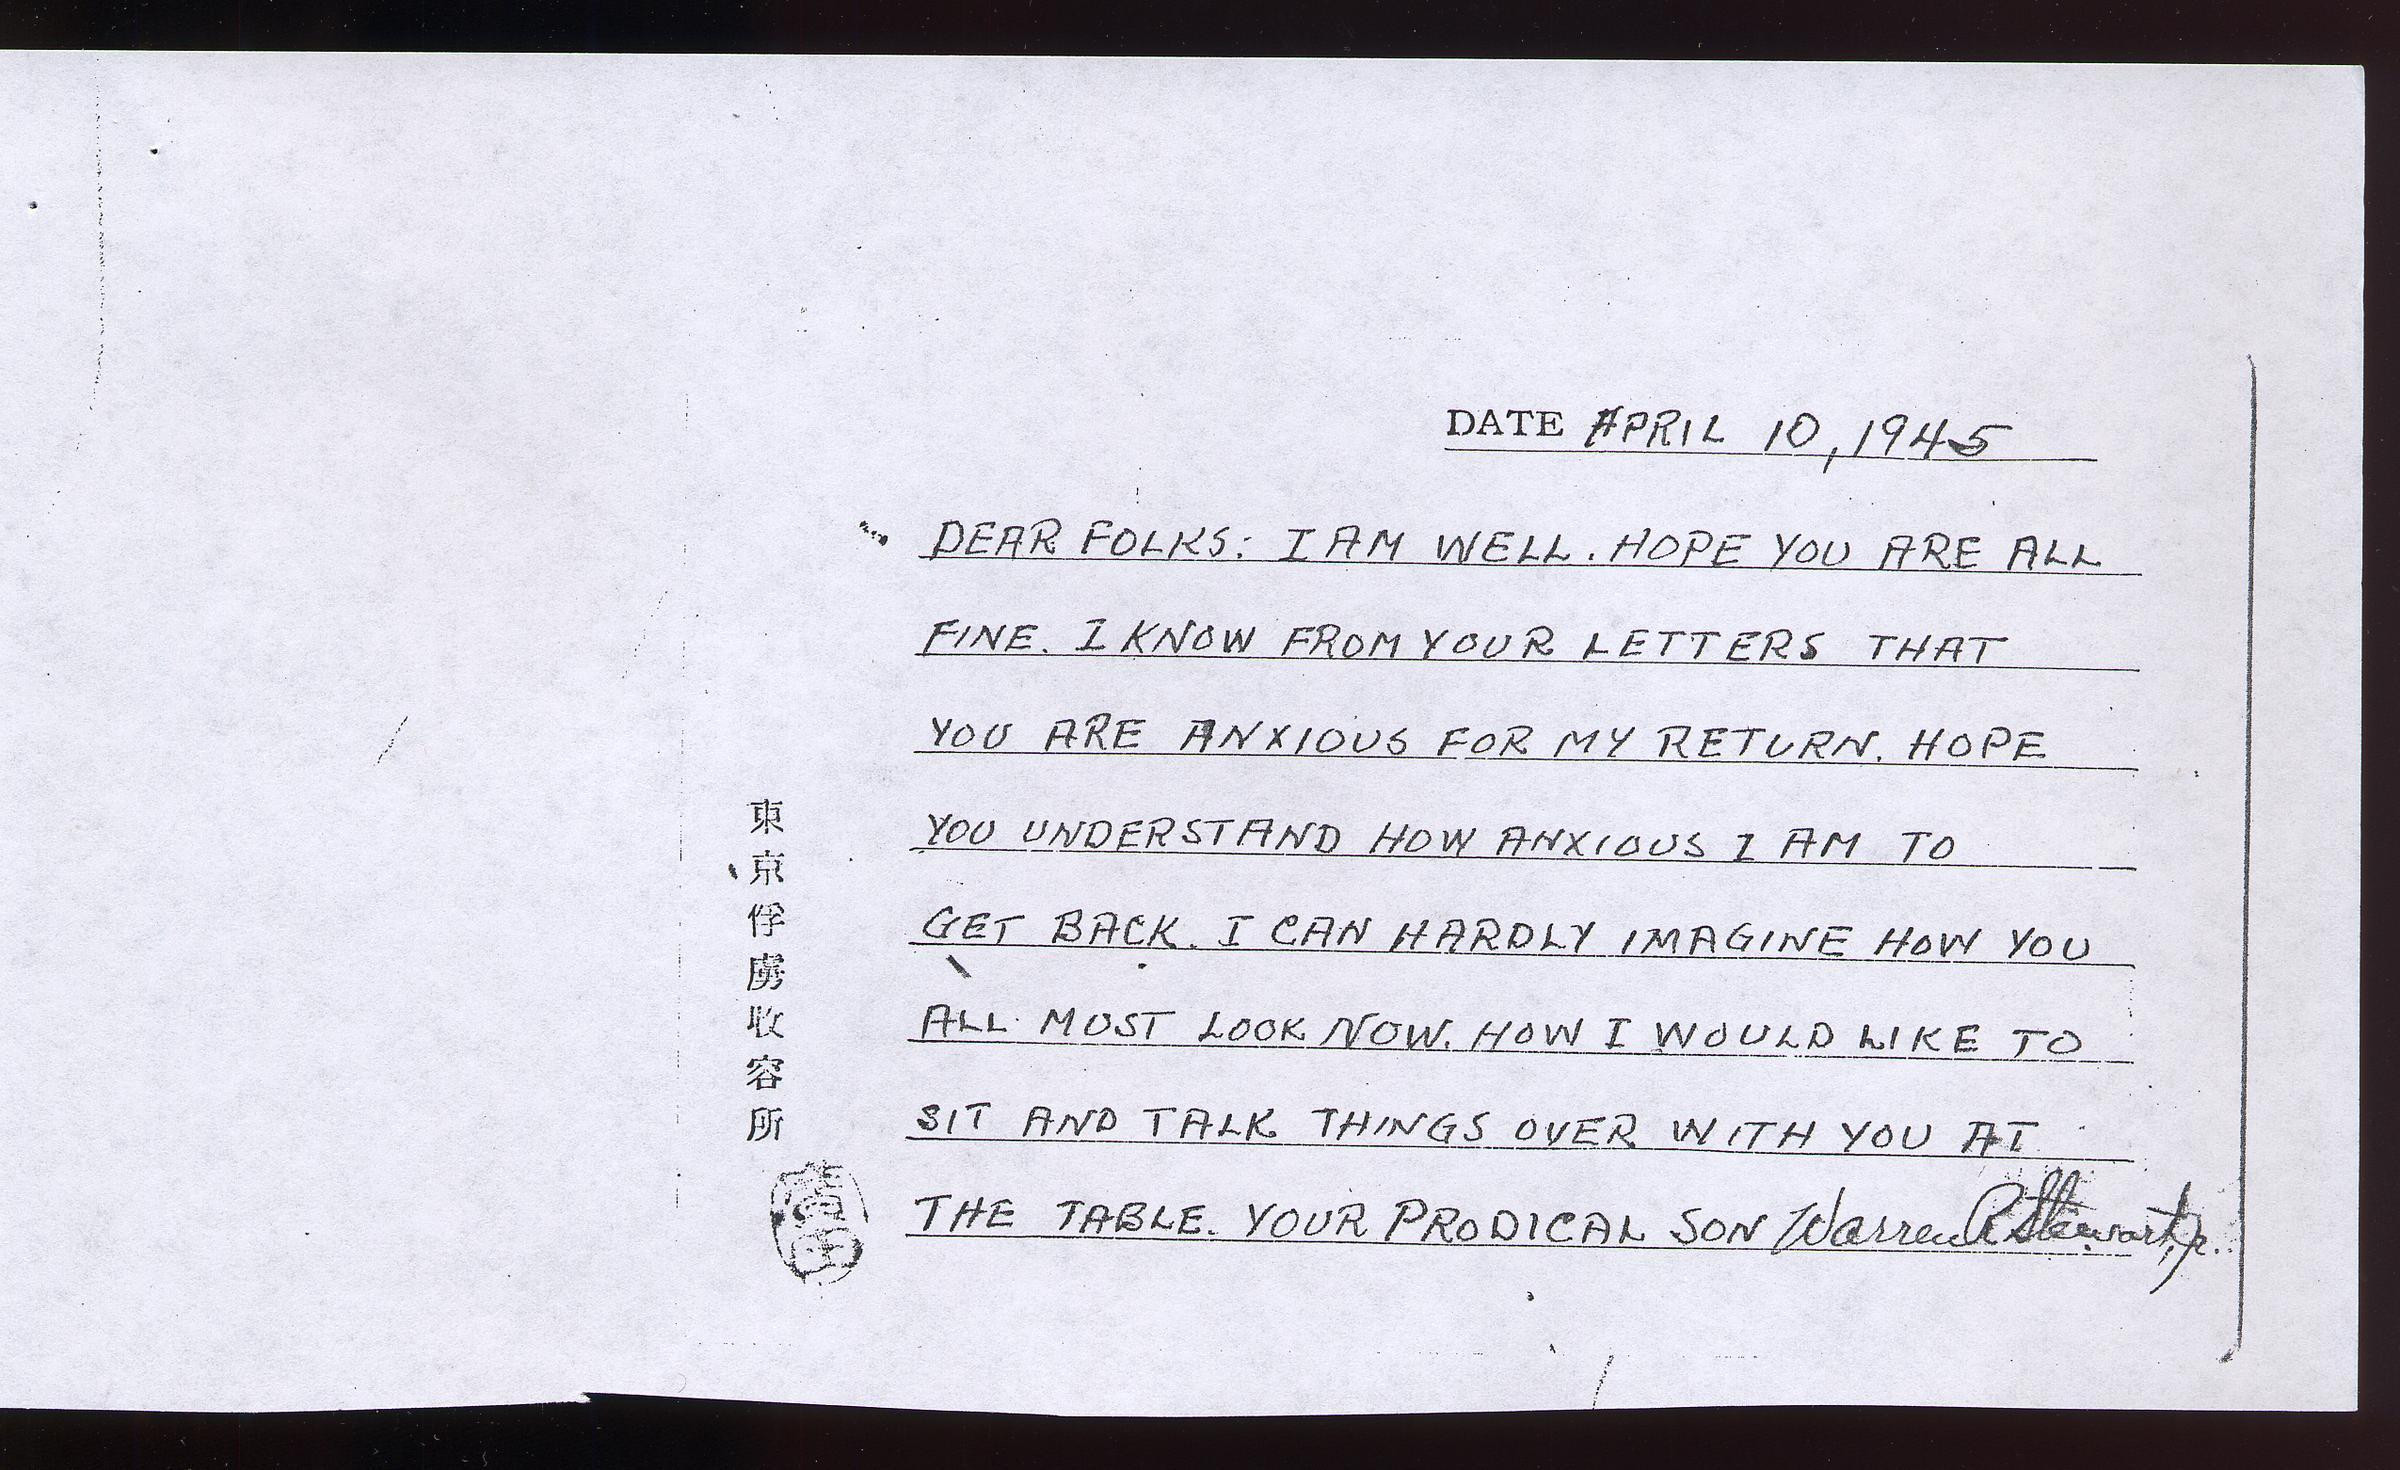 DATE APRIL 10, 1945
DEAR FOLKS: I AM WELL. HOPE YOU ARE ALL
FINE. I KNOW FROM YOUR LETTERS THAT
YOU ARE ANXIOUS FOR MY RETURN. HOPE
YOU UNDERSTAND HOW ANXIOUS I AM TO
GET BACK. I CAN HARDLY IMAGINE HOW YOU
ALL MUST LOOK NOW. HOW I WOULD LIKE TO
SIT AND TALK THINGS OVER WITH YOU AT
THE TABLE. YOUR PRODICAL SON Warren R Stewart, Jr.
東京俘虜収容所